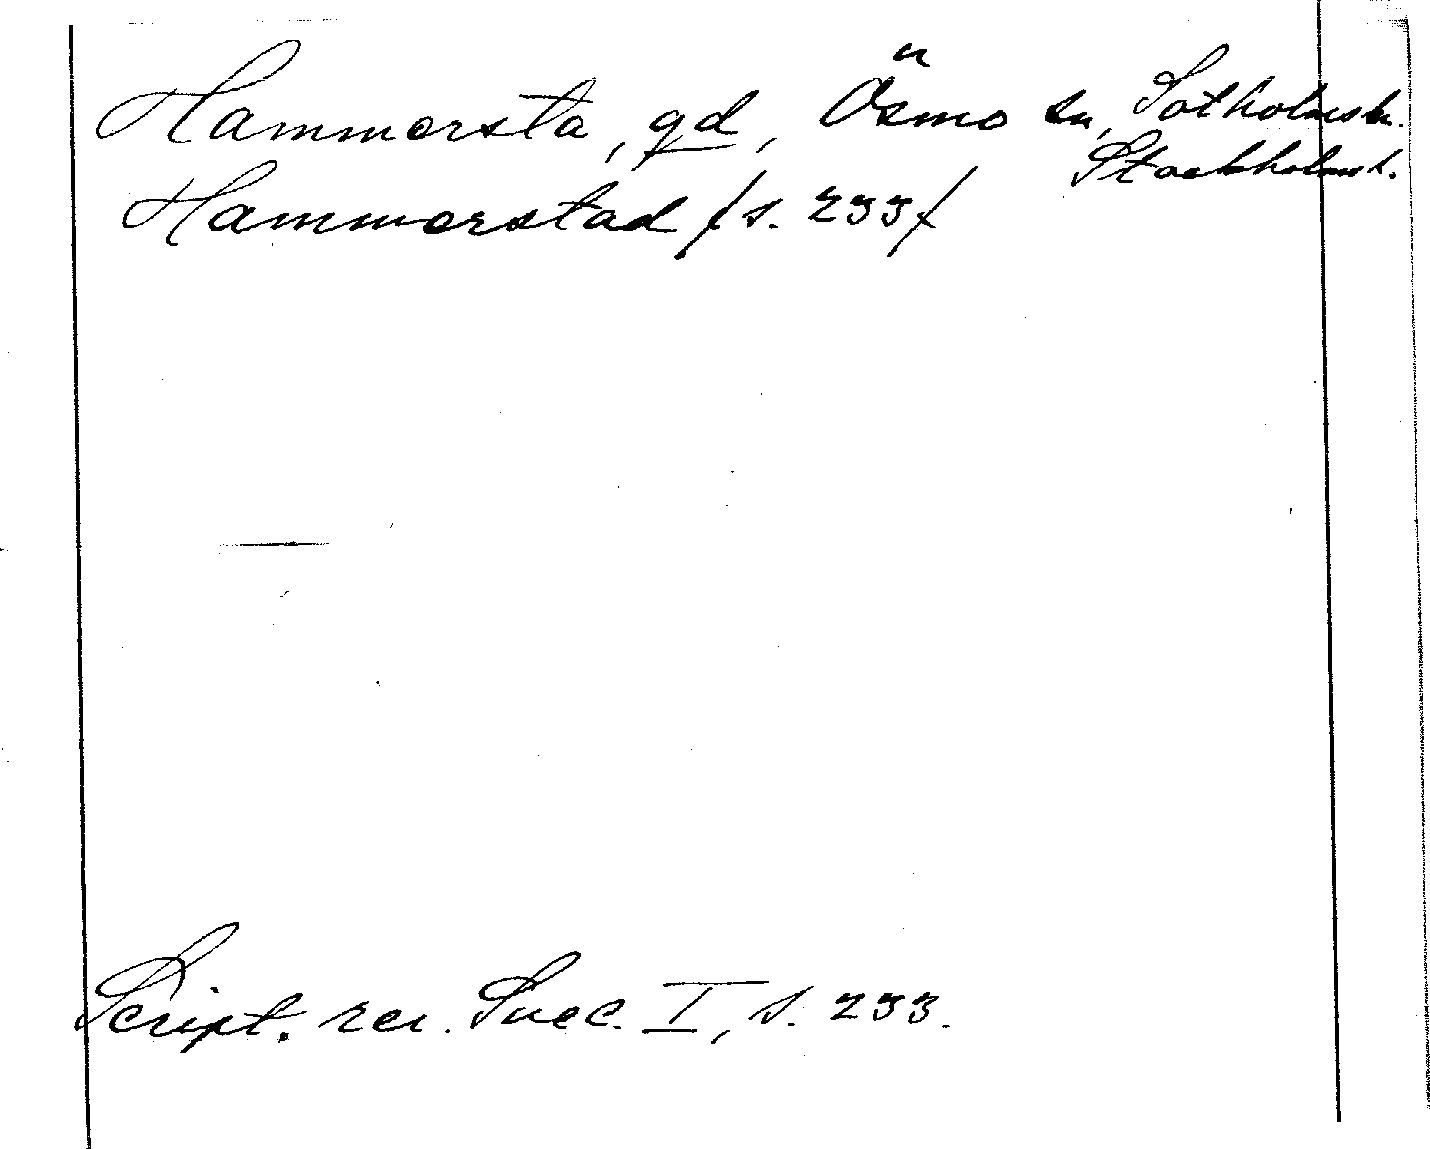 Hammersta, gd, Ösmo sn, Sotholms h.
Stockholms l.
Hammerstad /s. 233/
Script. rer. Suec. I, s. 233.